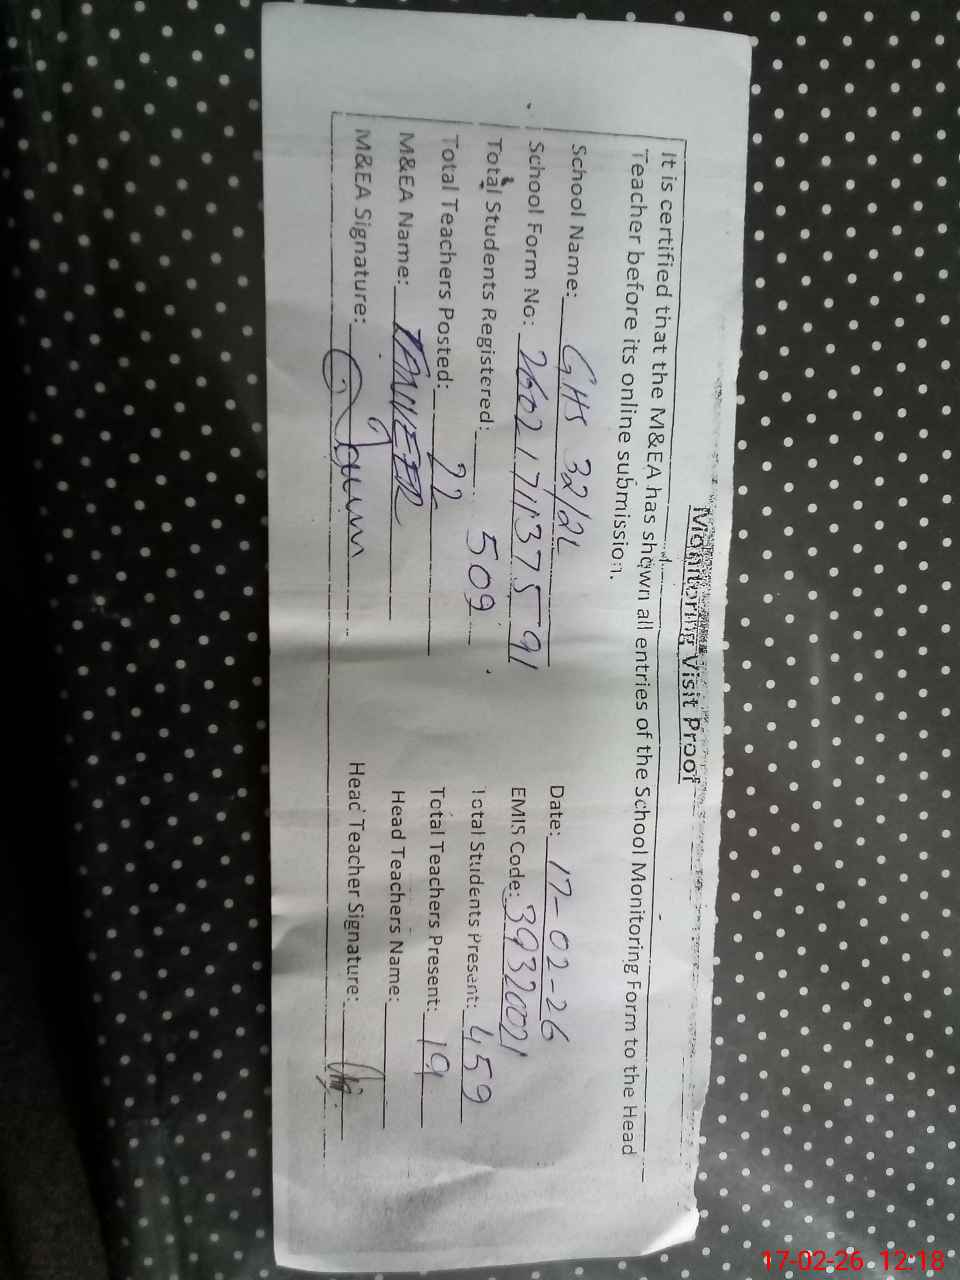 Monitoring Visit Proof
It is certified that the M&EA has shown all entries of the School Monitoring Form to the Head
Teacher before its online submission.
School Name: GHS 32/2L Date: 17-02-26
School Form No: 26021711375591 EMIS Code: 39320021
Total Students Registered: 509 Total Students Present: 459
Total Teachers Posted: 22 Total Teachers Present: 19
M&EA Name: TANVEER Head Teachers Name:
M&EA Signature: Head Teacher Signature:
17-02-26 12:18